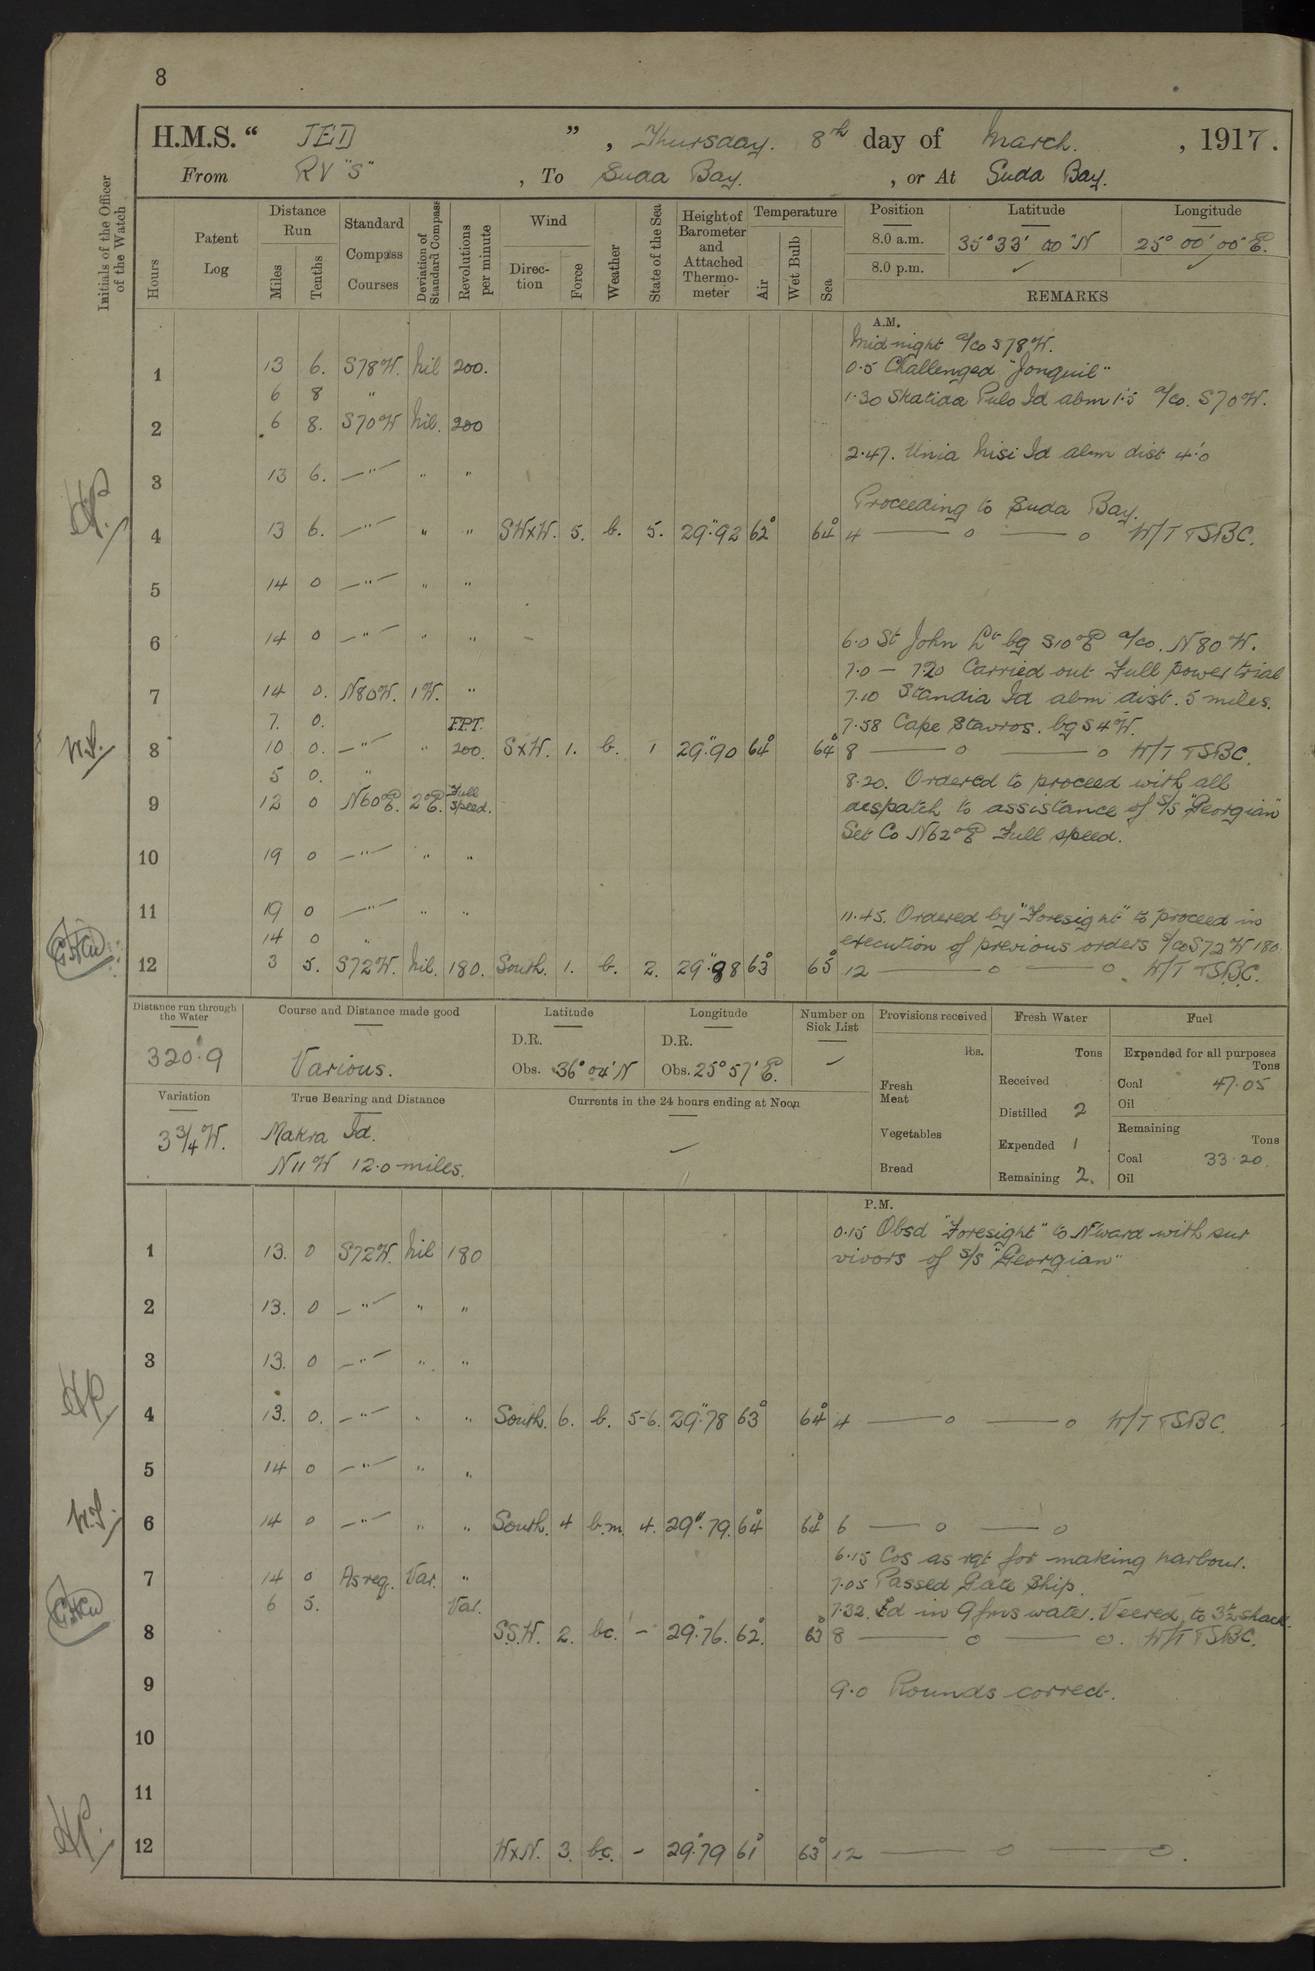 8
H.M.S. “ JED ” , Thursday. 8th day of March. , 1917.
From RV "S" , To Suda Bay. , or At Suda Bay.
Initials of the Officer of the Watch
Hours
Patent Log
Distance Run
Miles
Tenths
Standard Compass Courses
Deviation of Standard Compass
Revolutions per minute
Wind
Direction
Force
Weather
State of the Sea
Height of Barometer and Attached Thermometer
Temperature
Air
Wet Bulb
Sea
Position Latitude Longitude
8.0 a.m. 35° 33' 00" N 25° 00' 00" E.
8.0 p.m. ✓ ✓
REMARKS
A.M.
Midnight a/co S78W.
1 13 6. S78W. Nil 200. 0.5 Challenged "Jonquil"
6 8 " 1.30 Skatida Pulo Id abm 1.5 a/co. S70W.
2 6 8. S70W Nil. 200
2.47. Unia Nisi Id abm dist 4.'0
3 13 6. —"— " "
Proceeding to Suda Bay.
4 13 6. —"— " " SWxW. 5. b. 5. 29".92 62° 64° 4 — o — o W/T TSBC.
5 14 0 —"— " "
6 14 0 —"— " " 6.0 St John Lt bg S10°E a/co. N80W.
7.0 — 7.20 Carried out Full power trial
7 14 0. N80W. 1W. " 7.10 Standia Id abm dist. 5 miles.
7. 0. F.P.T. 7.58 Cape Stavros. bg S4W.
8 10 0. —"— " 200. SxW. 1. b. 1 29".90 64° 64° 8 — o — o W/T TSBC.
5 0. " 8.20. Ordered to proceed with all
9 12 0 N60°E. 2°E. Full speed. dispatch to assistance of S/S "Georgian"
Set Co N62°E Full speed.
10 19 0 —"— " "
11 19 0 —"— " " 11.45. Ordered by "Foresight" to proceed in
14 0 " execution of previous orders a/co S72W 180.
12 3 5. S72W. Nil. 180. South. 1. b. 2. 29".88 63° 65° 12 — o — o W/T TSBC.
Distance run through the Water
320.9
Course and Distance made good
Various.
Latitude
D.R.
Obs. 36° 04' N
Longitude
D.R.
Obs. 25° 57' E.
Number on Sick List
Provisions received
lbs.
Fresh Meat
Vegetables
Bread
Fresh Water
Tons
Received
Distilled 2
Expended 1
Remaining 2.
Fuel
Expended for all purposes
Tons
Coal 47.05
Oil
Remaining
Tons
Coal 33.20.
Oil
Variation
3¾ W.
True Bearing and Distance
Makra Id.
N11W 12.0 miles.
Currents in the 24 hours ending at Noon
P.M.
0.15 Obsd "Foresight" to N'ward with sur
1 13. 0 S72W. Nil 180 vivors of S/S "Georgian"
2 13. 0 —"— " "
3 13. 0 —"— " "
4 13. 0. —"— " " South. 6. b. 5-6. 29".78 63° 64° 4 — o — o W/T TSBC.
5 14 0 —"— " "
6 14 0 —"— " " South. 4 b.m. 4. 29".79. 64° 64° 6 — o — o
6.15 Cos as rqt for making harbour.
7 14 0 As req. Var. " 7.05 Passed Gate Ship.
6 5. Var. 7.32. Ed in 9 fms water. Veered to 3½ shack.
8 SS.W. 2. bc. - 29".76. 62°. 63° 8 — o — o. W/T TSBC.
9 9.0 Rounds correct.
10
11
12 WxN. 3. b.c. - 29".79 61° 63° 12 — o — o.